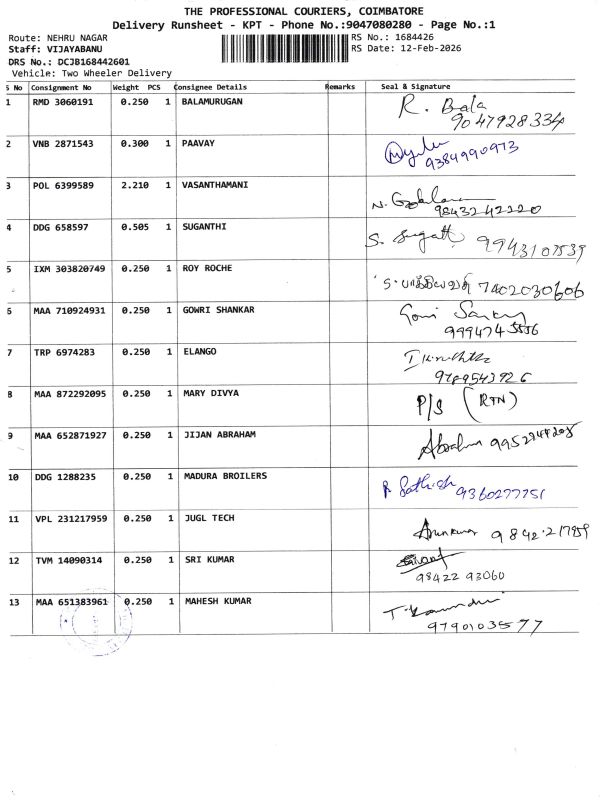 THE PROFESSIONAL COURIERS, COIMBATORE
Delivery Runsheet - KPT - Phone No.:9047080280 - Page No.:1
Route: NEHRU NAGAR RS No.: 1684426
Staff: VIJAYABANU RS Date: 12-Feb-2026
DRS No.: DCJB168442601
Vehicle: Two Wheeler Delivery
S No Consignment No Weight PCS Consignee Details Remarks Seal & Signature
1 RMD 3060191 0.250 1 BALAMURUGAN R. Bala
9047928334
2 VNB 2871543 0.300 1 PAAVAY
9384990973
3 POL 6399589 2.210 1 VASANTHAMANI
9843242220
4 DDG 658597 0.505 1 SUGANTHI S. Sugathi 9943107539
5 IXM 303820749 0.250 1 ROY ROCHE 7402030606
6 MAA 710924931 0.250 1 GOWRI SHANKAR Gowri Sankar
7 TRP 6974283 0.250 1 ELANGO
9789543926
8 MAA 872292095 0.250 1 MARY DIVYA P/S (RTN)
9 MAA 652871927 0.250 1 JIJAN ABRAHAM Abraham
10 DDG 1288235 0.250 1 MADURA BROILERS R Sathish 9360277251
11 VPL 231217959 0.250 1 JUGL TECH Arunkumar
12 TVM 14090314 0.250 1 SRI KUMAR
98422 93060
13 MAA 651383961 0.250 1 MAHESH KUMAR
9790103577